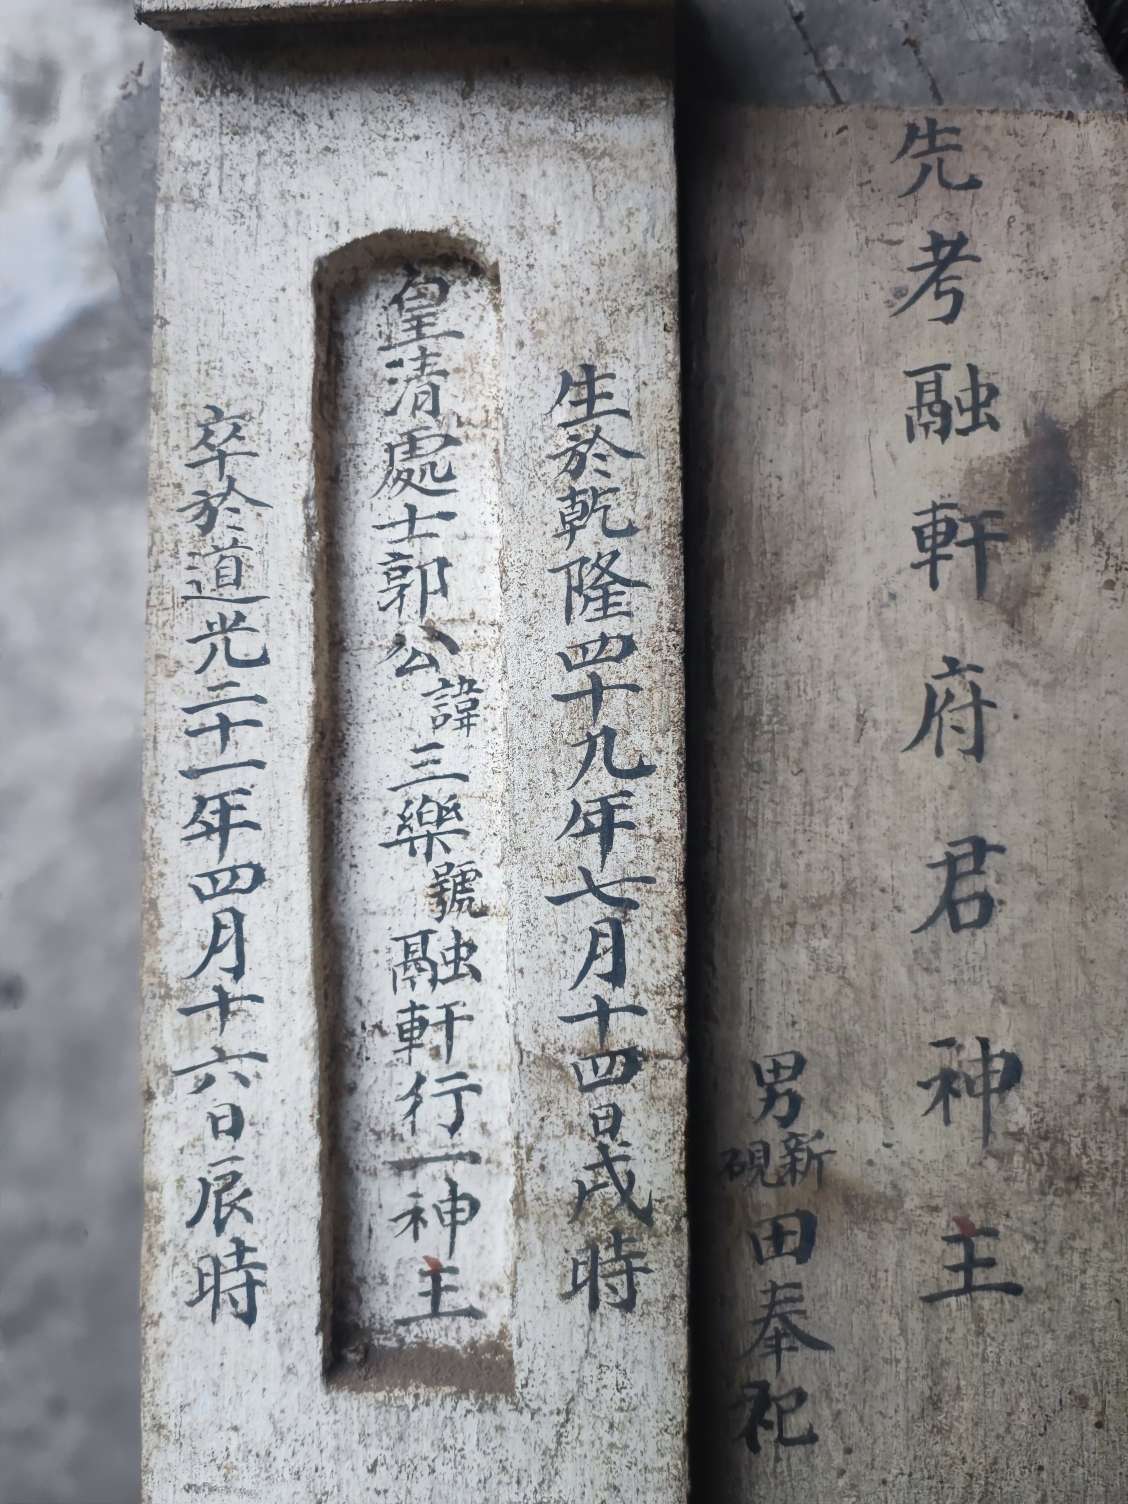 先考融軒府君神主
男新硯田奉祀
生於乾隆四十九年七月十四日戌時
皇清處士郭公諱三樂號融軒行一神主
卒於道光二十一年四月十六日辰時